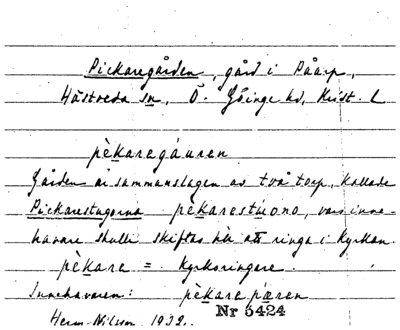 Pickaregården, gård i Påarp,
Hästveda sn, Ö. Göinge hd, Krist. L
pèkaregáuren
Gården är sammanslagen av två torp, kallade
Pickarestugorna pèkarestuono, vars inne-
havare skulle skiftas till att ringa i Kyrkan.
pèkare = Kyrkoringare.
Innehavaren: pèkare pæren
Nr 5424
Herm. Nilsson 1932.